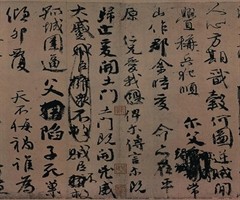 人心方期戩穀何圖逆賊閒
釁稱兵犯順爾父竭誠常
山作郡余時受命亦在平
原仁兄愛我俾爾傳言爾既
歸止爰開土門土門既開凶威
大蹙賊臣擁衆不救
孤城圍逼父陷子死巢
傾卵覆天不悔禍誰為